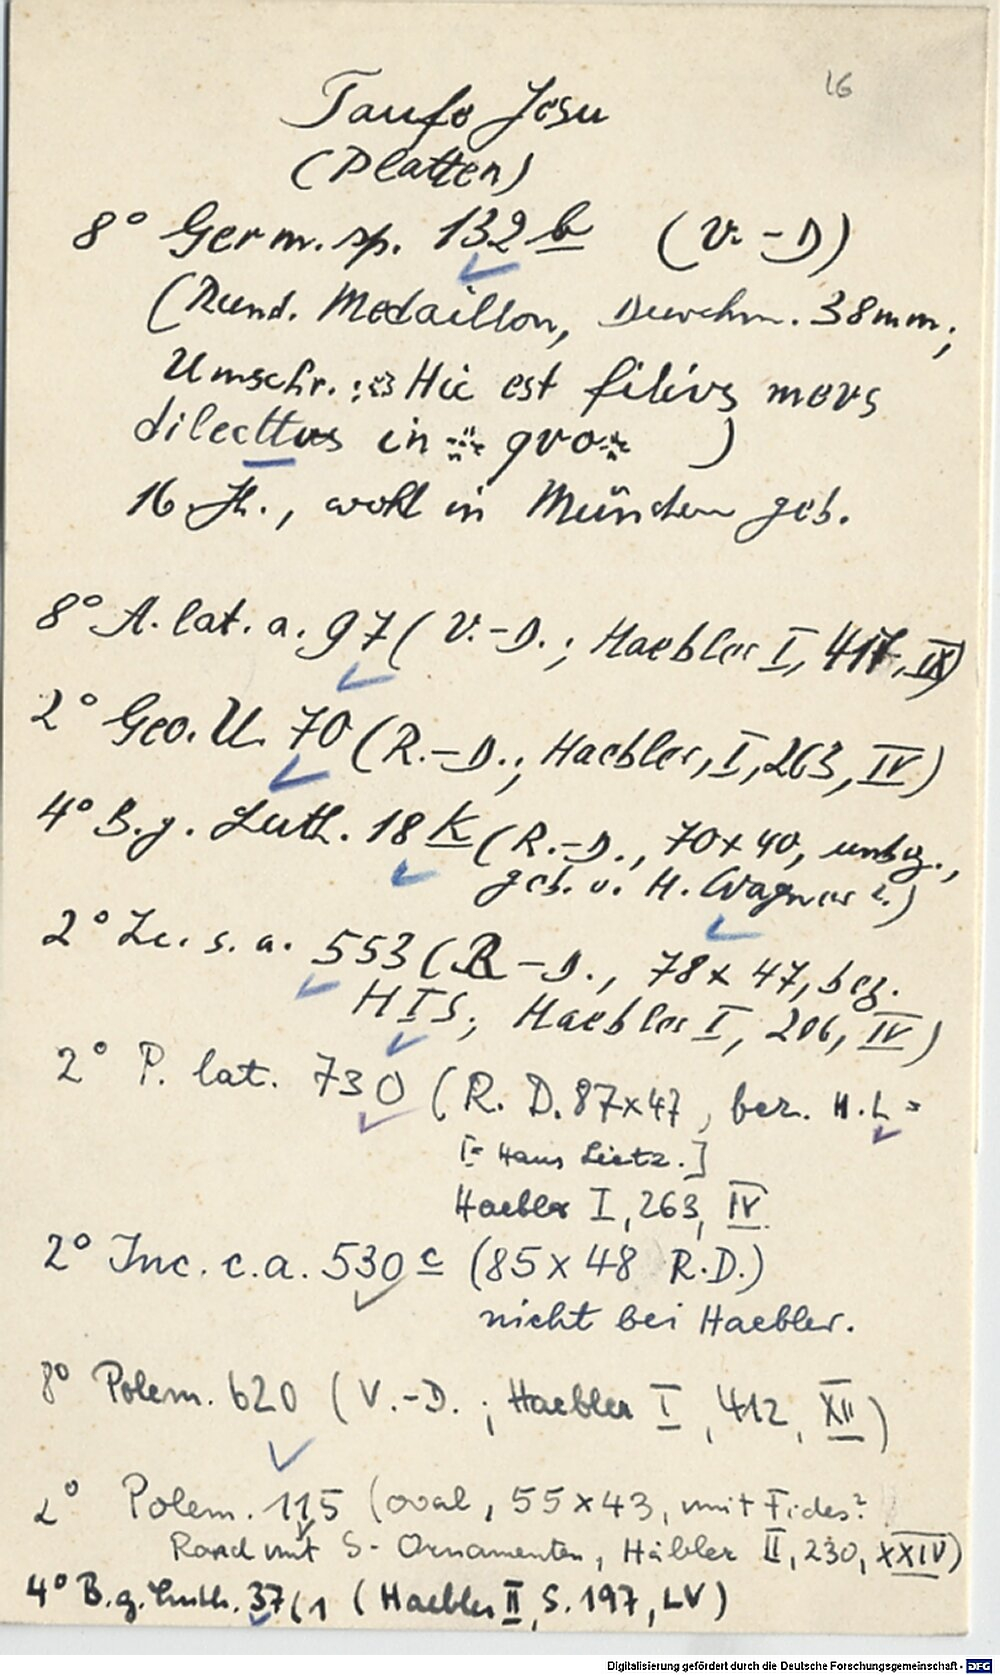 16
Taufe Jesu
(Platten)
8° Germ. sp. 132 b (V.-D)
(Rund. Medaillon, Durchm. 38mm;
Umschr.: Hic est filivs mevs
dilecttus in qvo )
16. Jh., wohl in München geb.
8° A. lat. a. 97 (V.-D.; Haebler I, 417, IX)
2° Geo. U. 70 (R.-D., Haebler, I, 263, IV)
4° B. g. Luth. 18 k (R.-D., 70x40, unbez.,
geb. v. H. Wagner?)
2° Lc. s. a. 553 (R-D., 78x47, bez.
HIS; Haebler I, 206, IV)
2° P. lat. 730 (R. D. 87x47, bez. H.L =
[= Hans Lietz.]
Haebler I, 263, IV
2° Inc. c. a. 530 c (85x48 R.D.)
nicht bei Haebler.
8° Polem. 620 (V.-D.; Haebler I, 412, XII)
2° Polem. 115 (oval, 55x43, mit Fides?
Rand mit S-Ornamenten, Häbler II, 230, XXIV)
4° B. g. Luth. 37(1 (Haebler II, S. 197, LV)
Digitalisierung gefördert durch die Deutsche Forschungsgemeinschaft - DFG